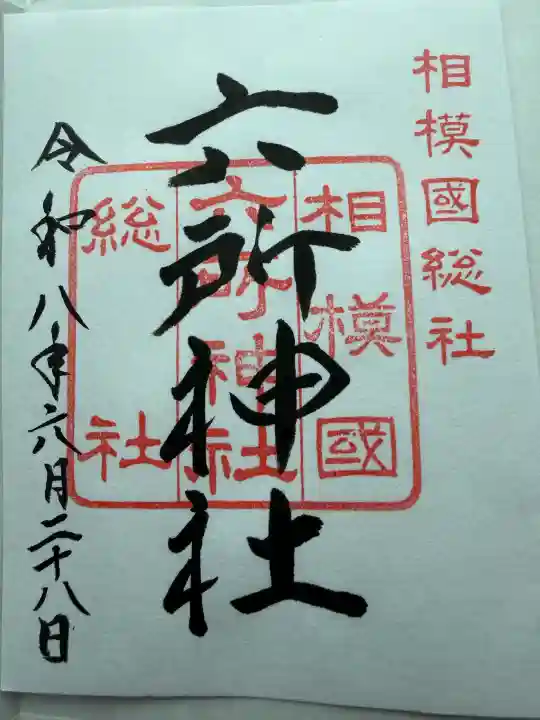 相模國総社
六所神社
相模國
六所神社
総社
令和八年六月二十八日